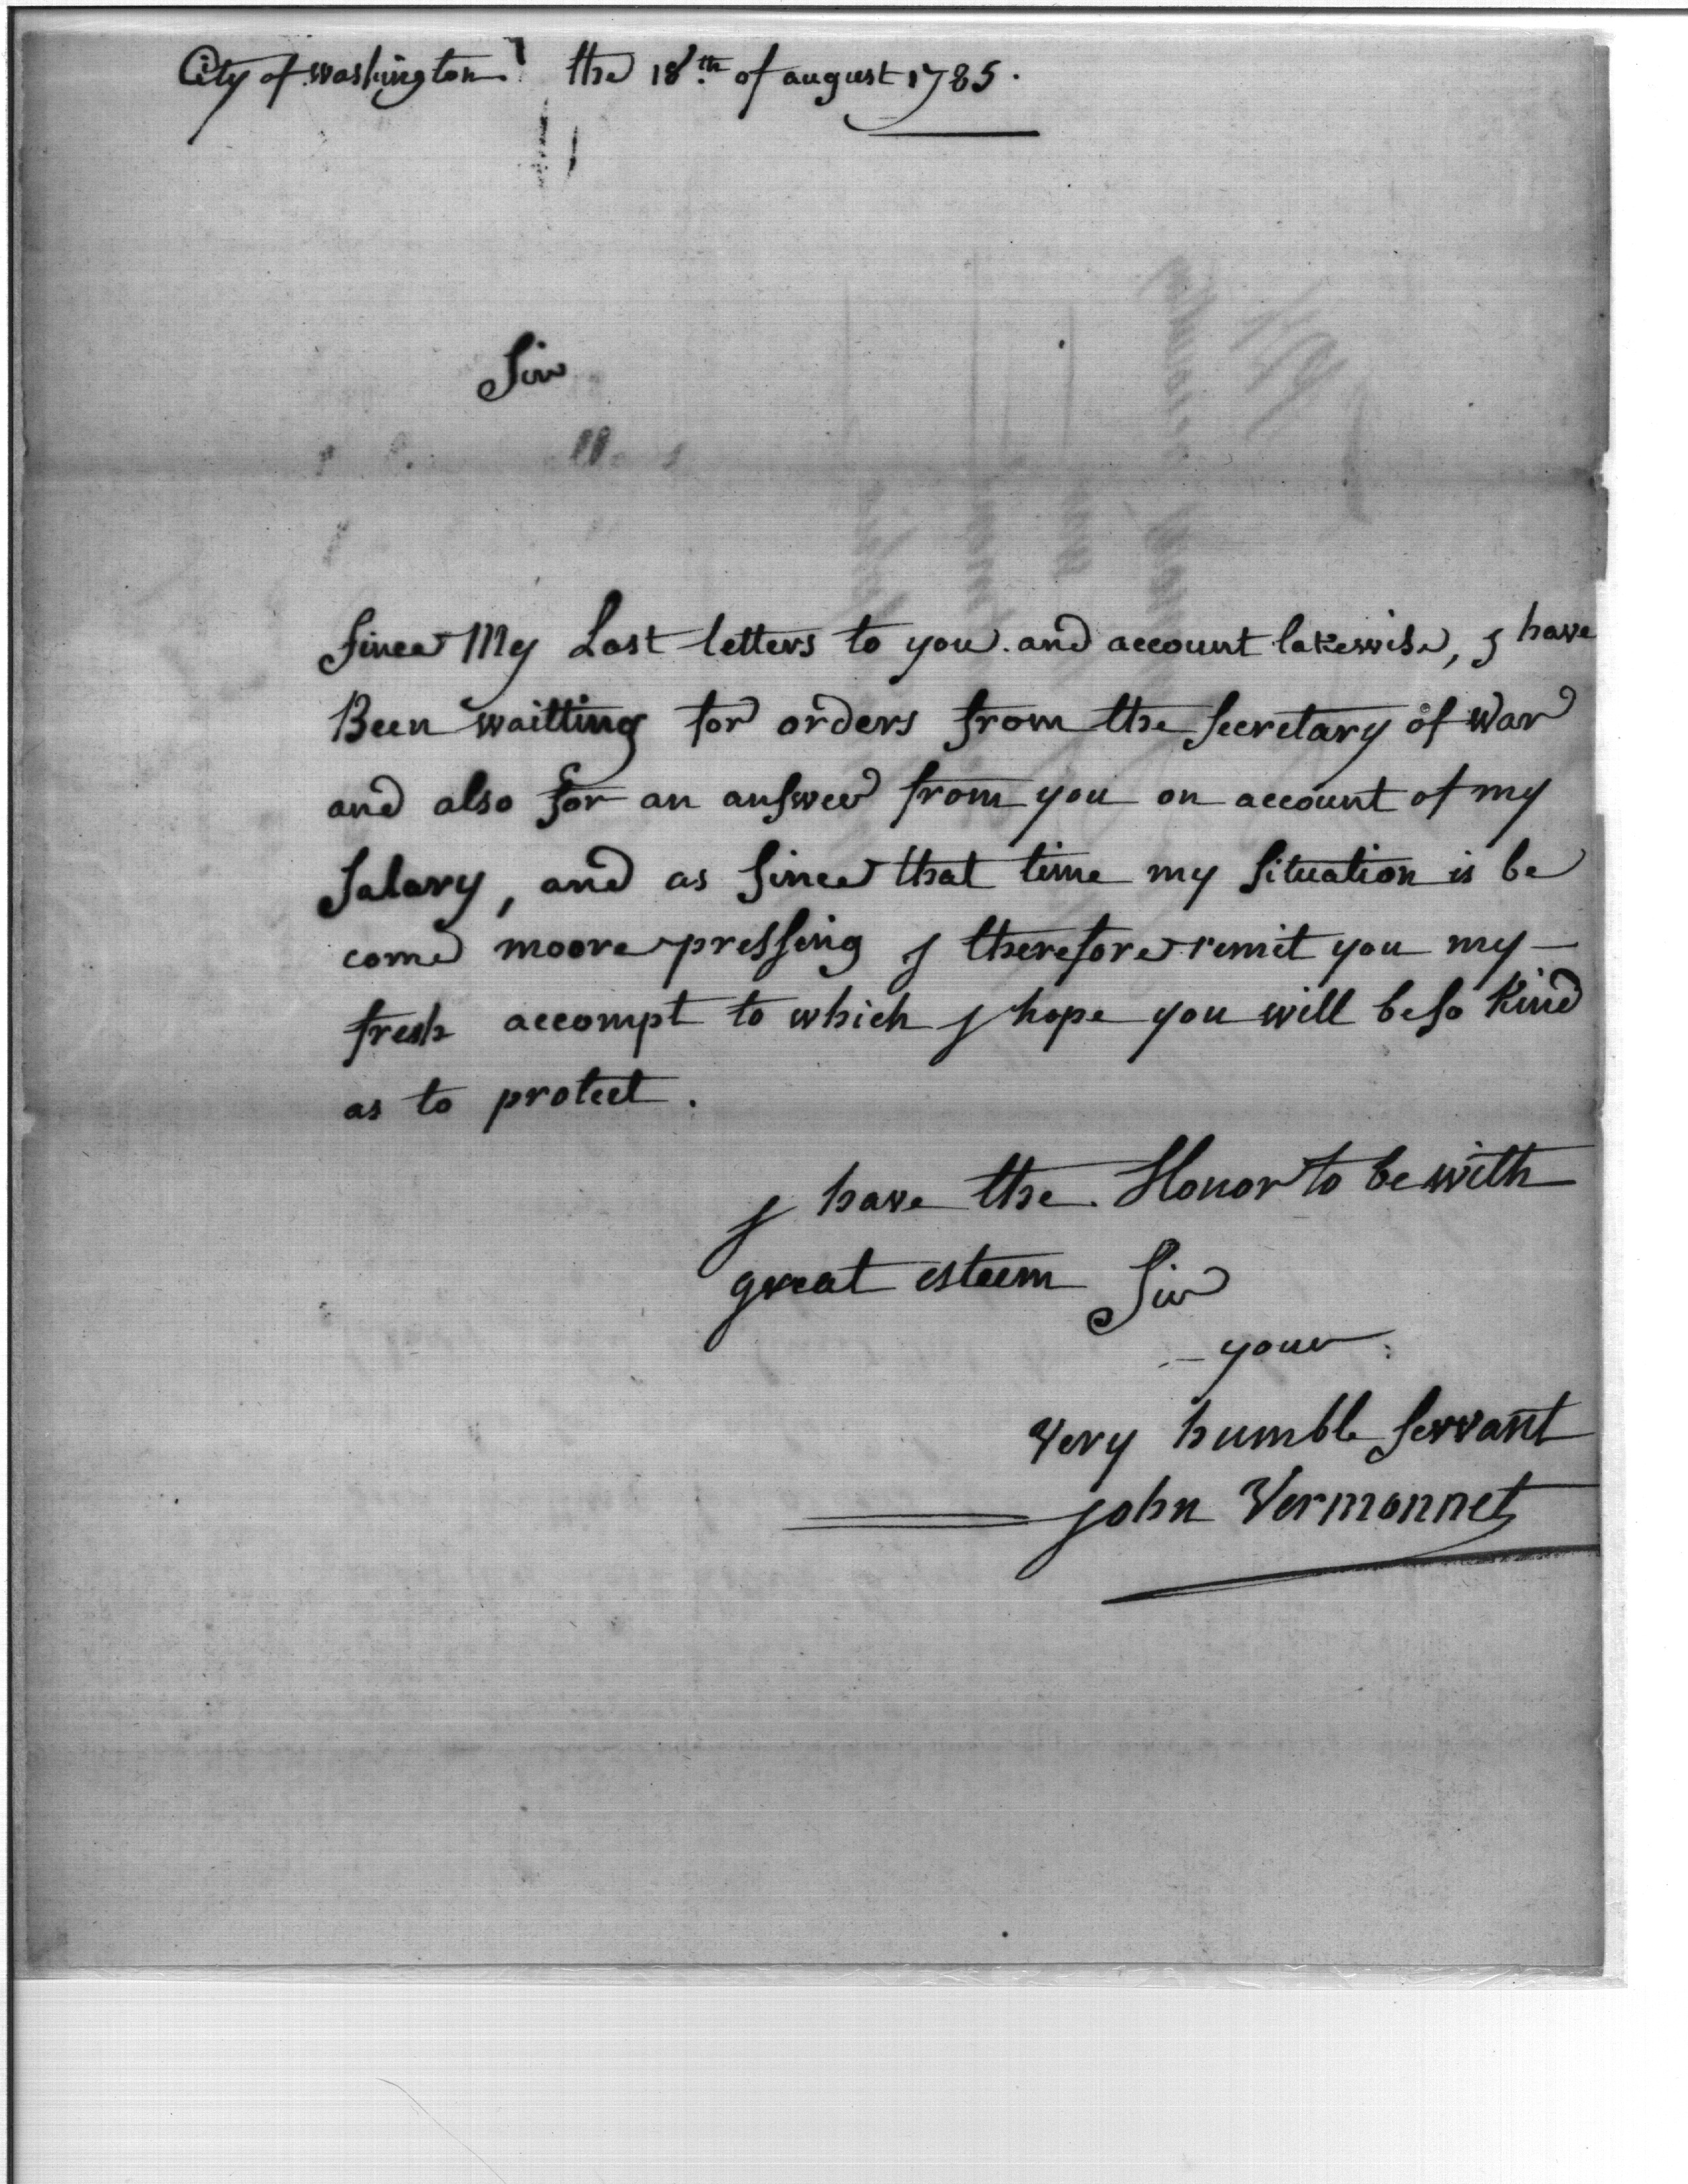 City of washington the 18th of august 1785.
Sir
Since My Last letters to you and account lakewise, J have
Been waitting for orders from the Secretary of War
and also for an answer from you on account of my
Salary, and as Since that time my Situation is be
come moore pressing J therefore remit you my
fresh accompt to which J hope you will be so Kind
as to protect.
J have the Honor to be with
great esteem Sir
your
Very humble Servant
john Vermonnet